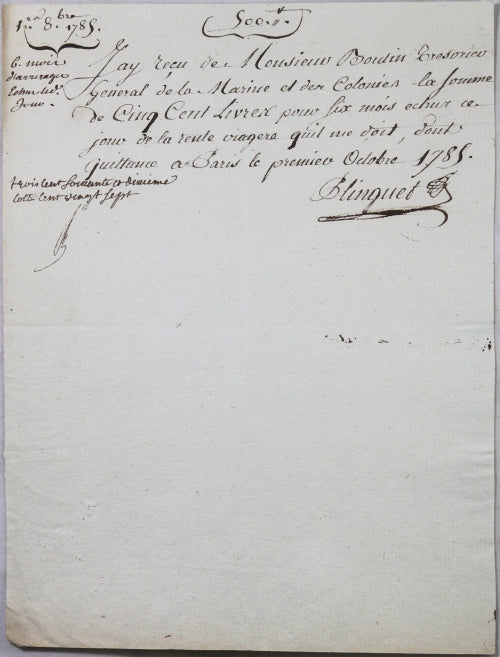 1er 8.bre 1785.
500.tt
6. mois
d'arrerages
Echus led.
Jour
J'ay reçu de Monsieur Boudin Tresorier
General de la Marine et des Colonies la somme
de Cinq Cent Livres pour six mois echus ce
jour de la rente viagere qu'il me doit, dont
Quittance a Paris le premier Octobre 1785.
trois cent soixante et dixieme
cotte cent vingt sept
Blinquet